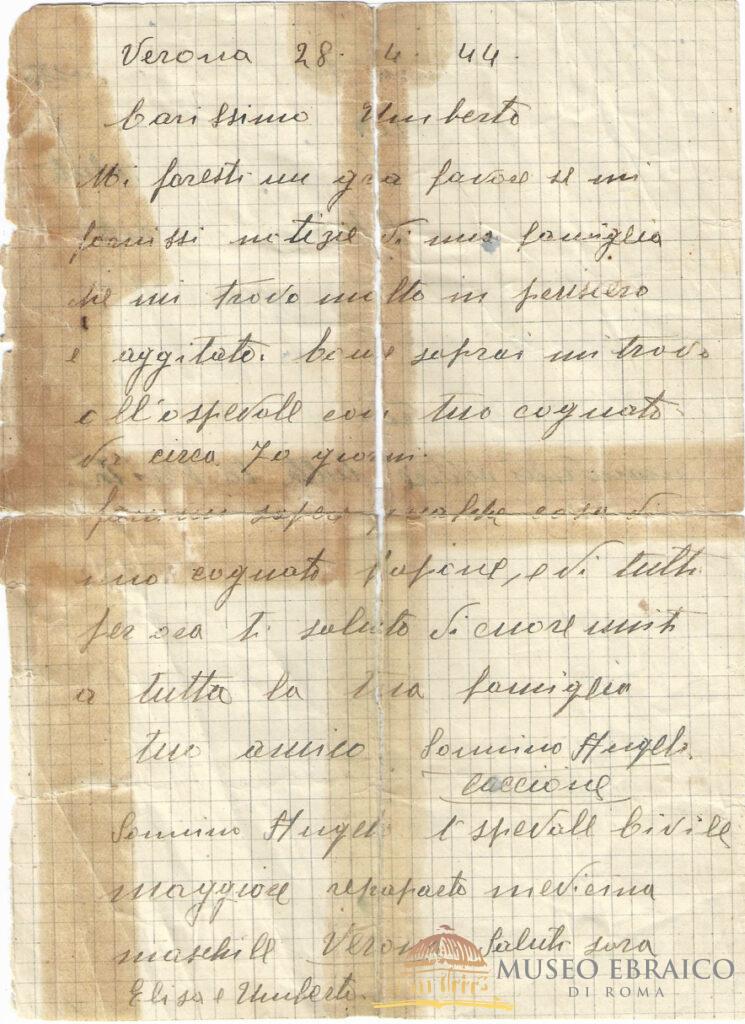 Verona 28. 4. 44.
Carissimo Umberto
Mi faresti un gra favore se mi
fornissi notizie di mia famiglia
che mi trovo molto in pensiero
e aggitato. Come saprai mi trovo
all'ospedale con tuo cognato
da circa 70 giorni.
fammi sapere qualche cosa di
mio cognato Papone, e di tutti
per ora ti saluto di cuore uniti
a tutta la tua famiglia
tuo amico Sonnino Angelo
caccione
Sonnino Angelo Ospedale Civile
maggiore medicina
maschile Verona Saluti sora
Elisa e Umberto.
MUSEO EBRAICO
DI ROMA